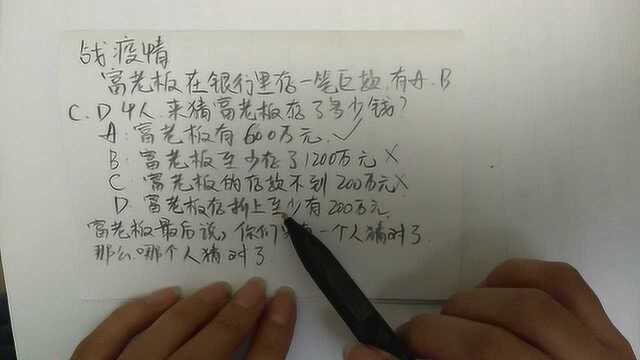 战疫情
富老板在银行里存一笔巨款,有A.B
C.D 4人.来猜富老板存了多少钱?
A:富老板有600万元.✓
B:富老板至少存了1200万元×
C 富老板的存款不到200万元×
D 富老板存折上至少有200万元.
富老板最后说,你们 一个人猜对了.
那么哪个人猜对了